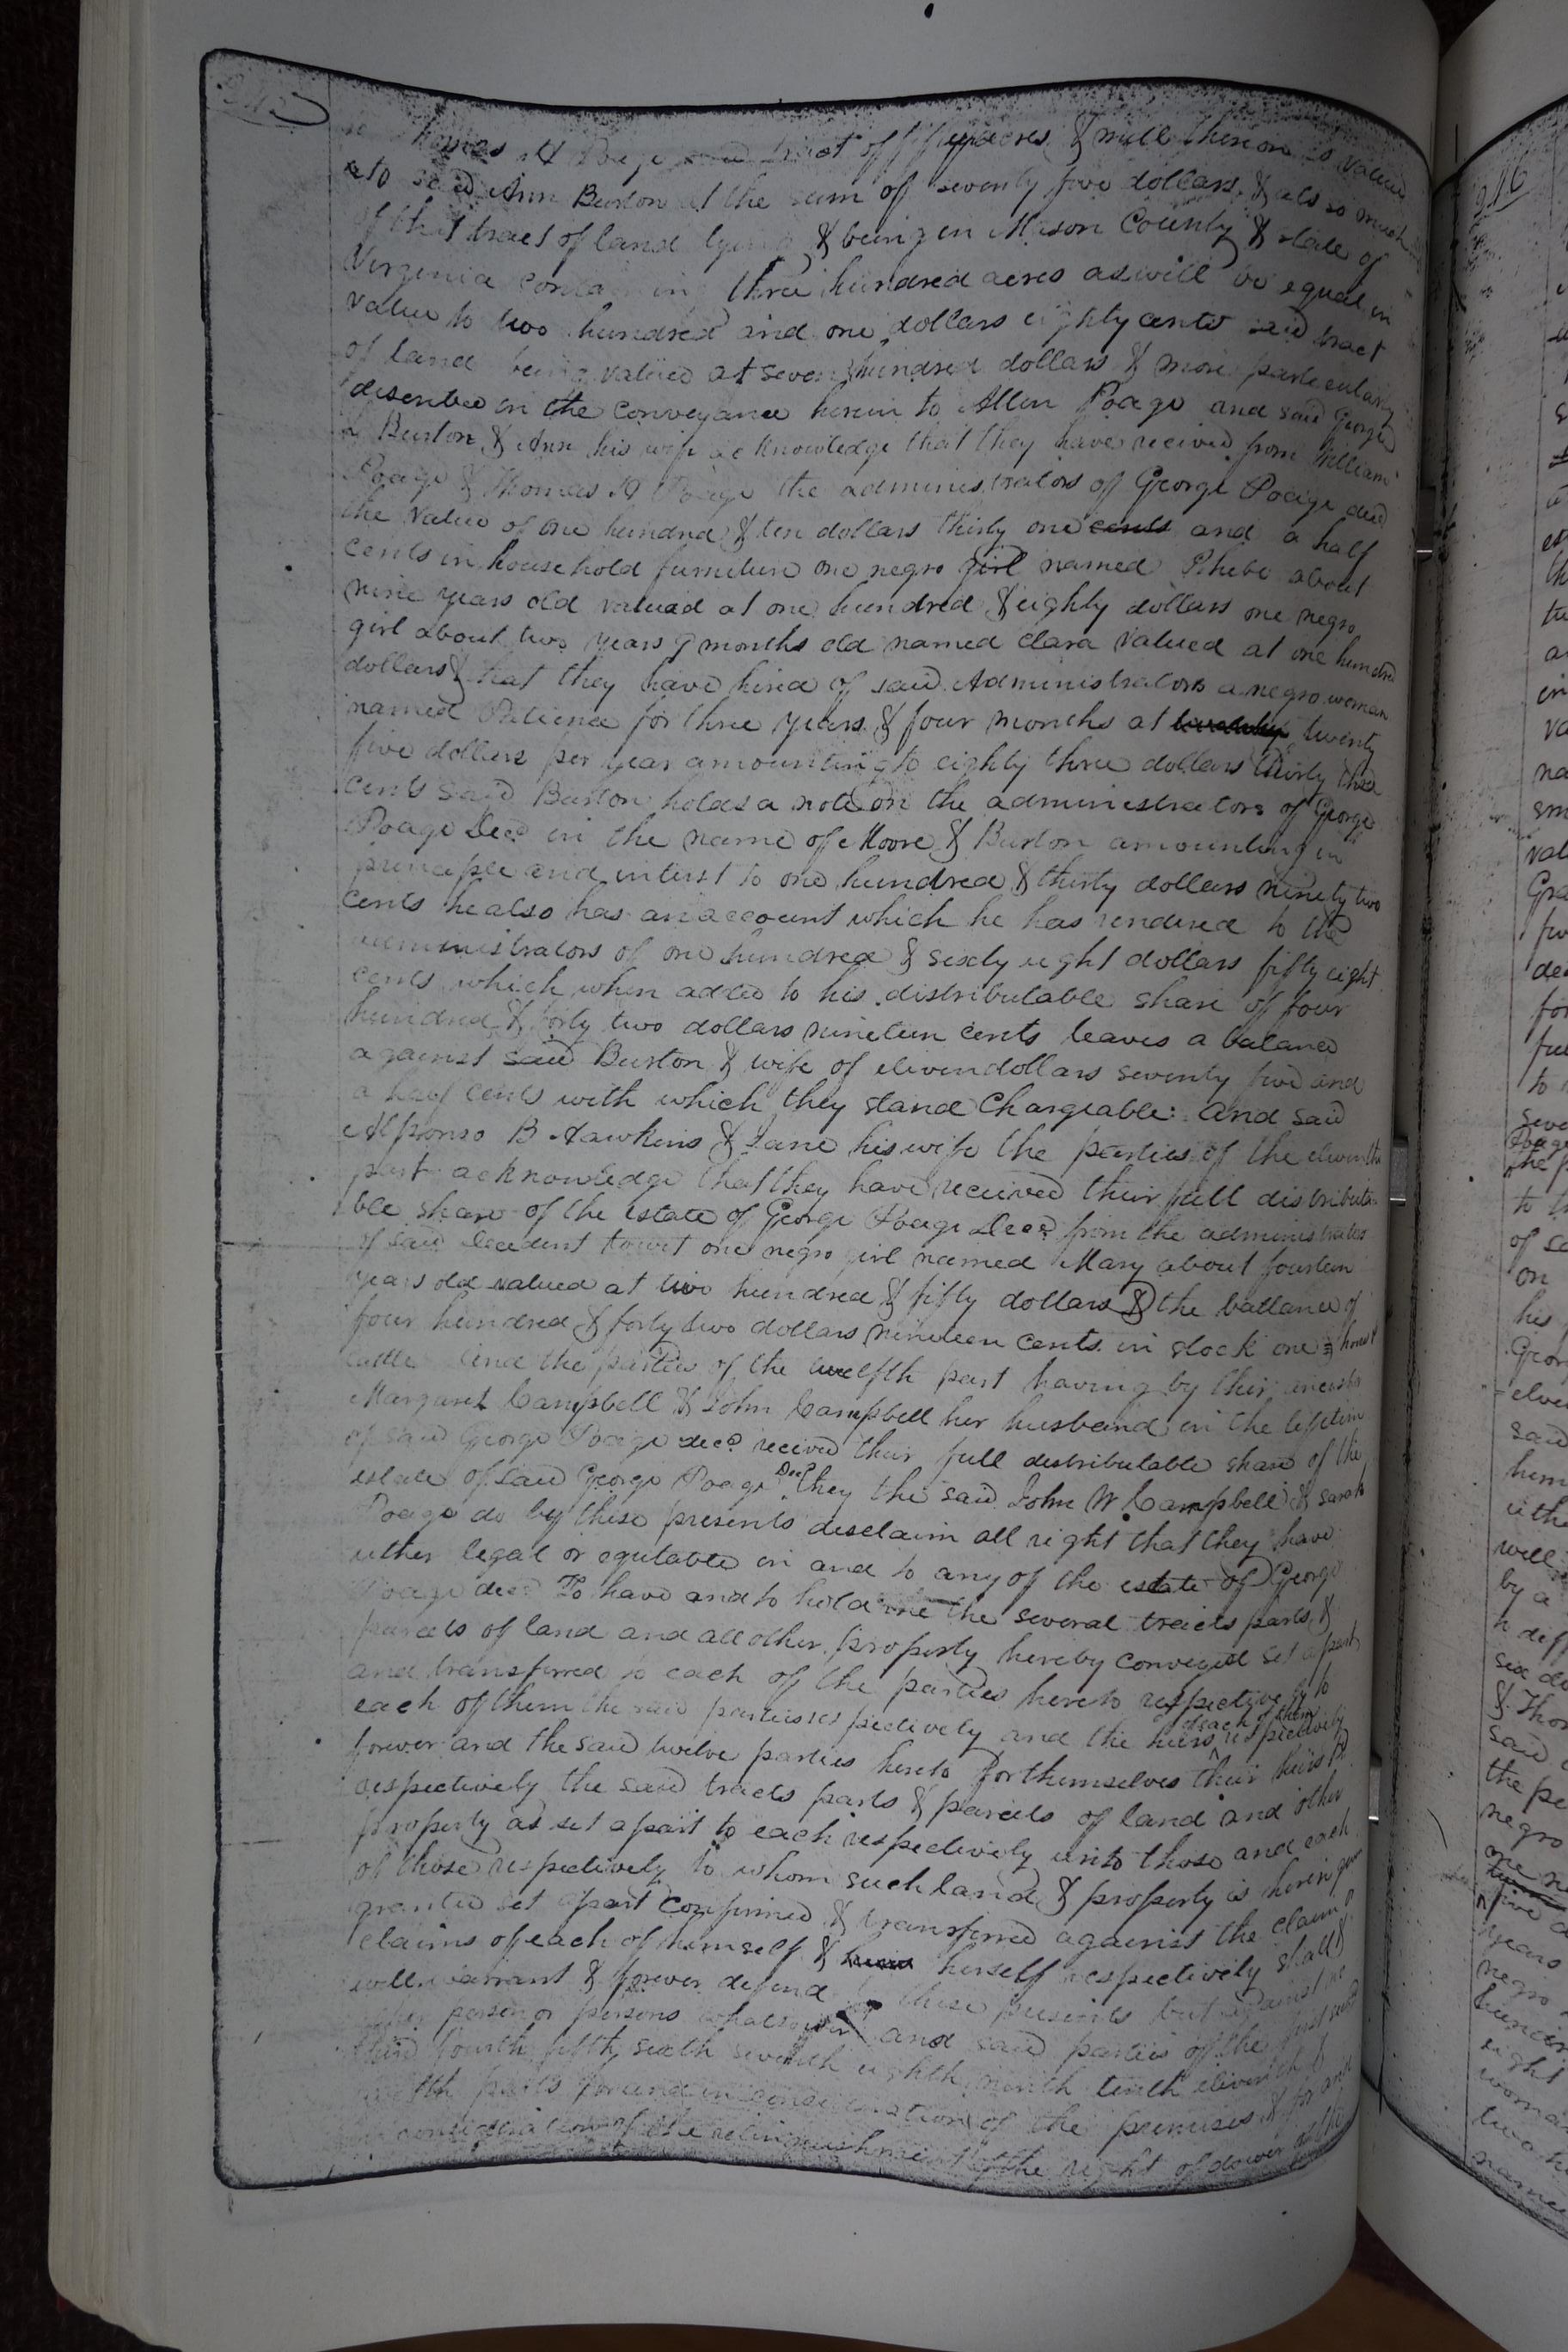 245
Thomas H Poage said tract of fifty acres & mill thereon is valued
to said Ann Burton at the sum of seventy five dollars & als so much
of that tract of land lying & being in Mason County & state of
Virginia containing three hundred acres as will be equal in
value to two hundred and one dollars eighty cents said tract
of land being valued at seven hundred dollars & more particularly
described in the conveyance herein to Allen Poage and said George
Burton & Ann his wife acknowledge that they have received from William
Poage & Thomas H Poage the administrators of George Poage decd
the value of one hundred & ten dollars thirty one cents and a half
cents in household furniture one negro girl named Phebe about
nine years old valued at one hundred & eighty dollars one negro
girl about two years 9 months old named Clara valued at one hundred
dollars & that they have hired of said Administrators a negro woman
named Patience for three years & four months at twenty
five dollars per year amounting to eighty three dollars thirty three
cents said Burton holds a note on the administrators of George
Poage Decd in the name of Moore & Burton amounting in
principle and interst to one hundred & thirty dollars ninety two
cents he also has an account which he has rendered to the
administrators of one hundred & sixty eight dollars fifty eight
cents which when added to his distributable share of four
hundred & forty two dollars nineteen cents leaves a balance
against said Burton & wife of eleven dollars seventy five and
a half cents with which they stand Chargeable: and said
Alfonso B Hawkins & Jane his wife the parties of the eleventh
part acknowledge that they have received their full distributa-
ble share of the estate of George Poage Decd from the administrators
of said decedent towit one negro girl named Mary about fourteen
years old valued at two hundred & fifty dollars & the ballance of
four hundred & forty two dollars nineteen cents in stock one horse &
cattle And the parties of the twelfth part having by their ancestor
Margaret Campbell & John Campbell her husband in the lifetime
of said George Poage decd received their full distributable share of the
estate of said George Poage Decd they the said John W Campbell & Sarah
Poage do by these presents disclaim all right that they have
either legal or equitable in and to any of the estate of George
Poage decd To have and to hold the several tracts parts &
parcels of land and all other property hereby conveyed set apart
and transferred to each of the parties hereto respectively to
each of them the said parties respectively and the heirs of each of them respectively
forever and the said twelve parties hereto for themselves their heirs &
respectively the said tracts parts & parcels of land and other
property as set apart to each respectively unto those and each
of those respectively to whom such land & property is herein
granted set apart confirmed & transferred against the claim or
claims of each of himself & herself respectively shall &
will warrant & forever defend by these presents but against no
other person or persons whatsoever and said parties of the first second
third fourth fifth sixth seventh eighth ninth tenth eleventh &
twelfth parts for and in consideration of the premises & for and
in consideration of the relinquishment of the right of dower